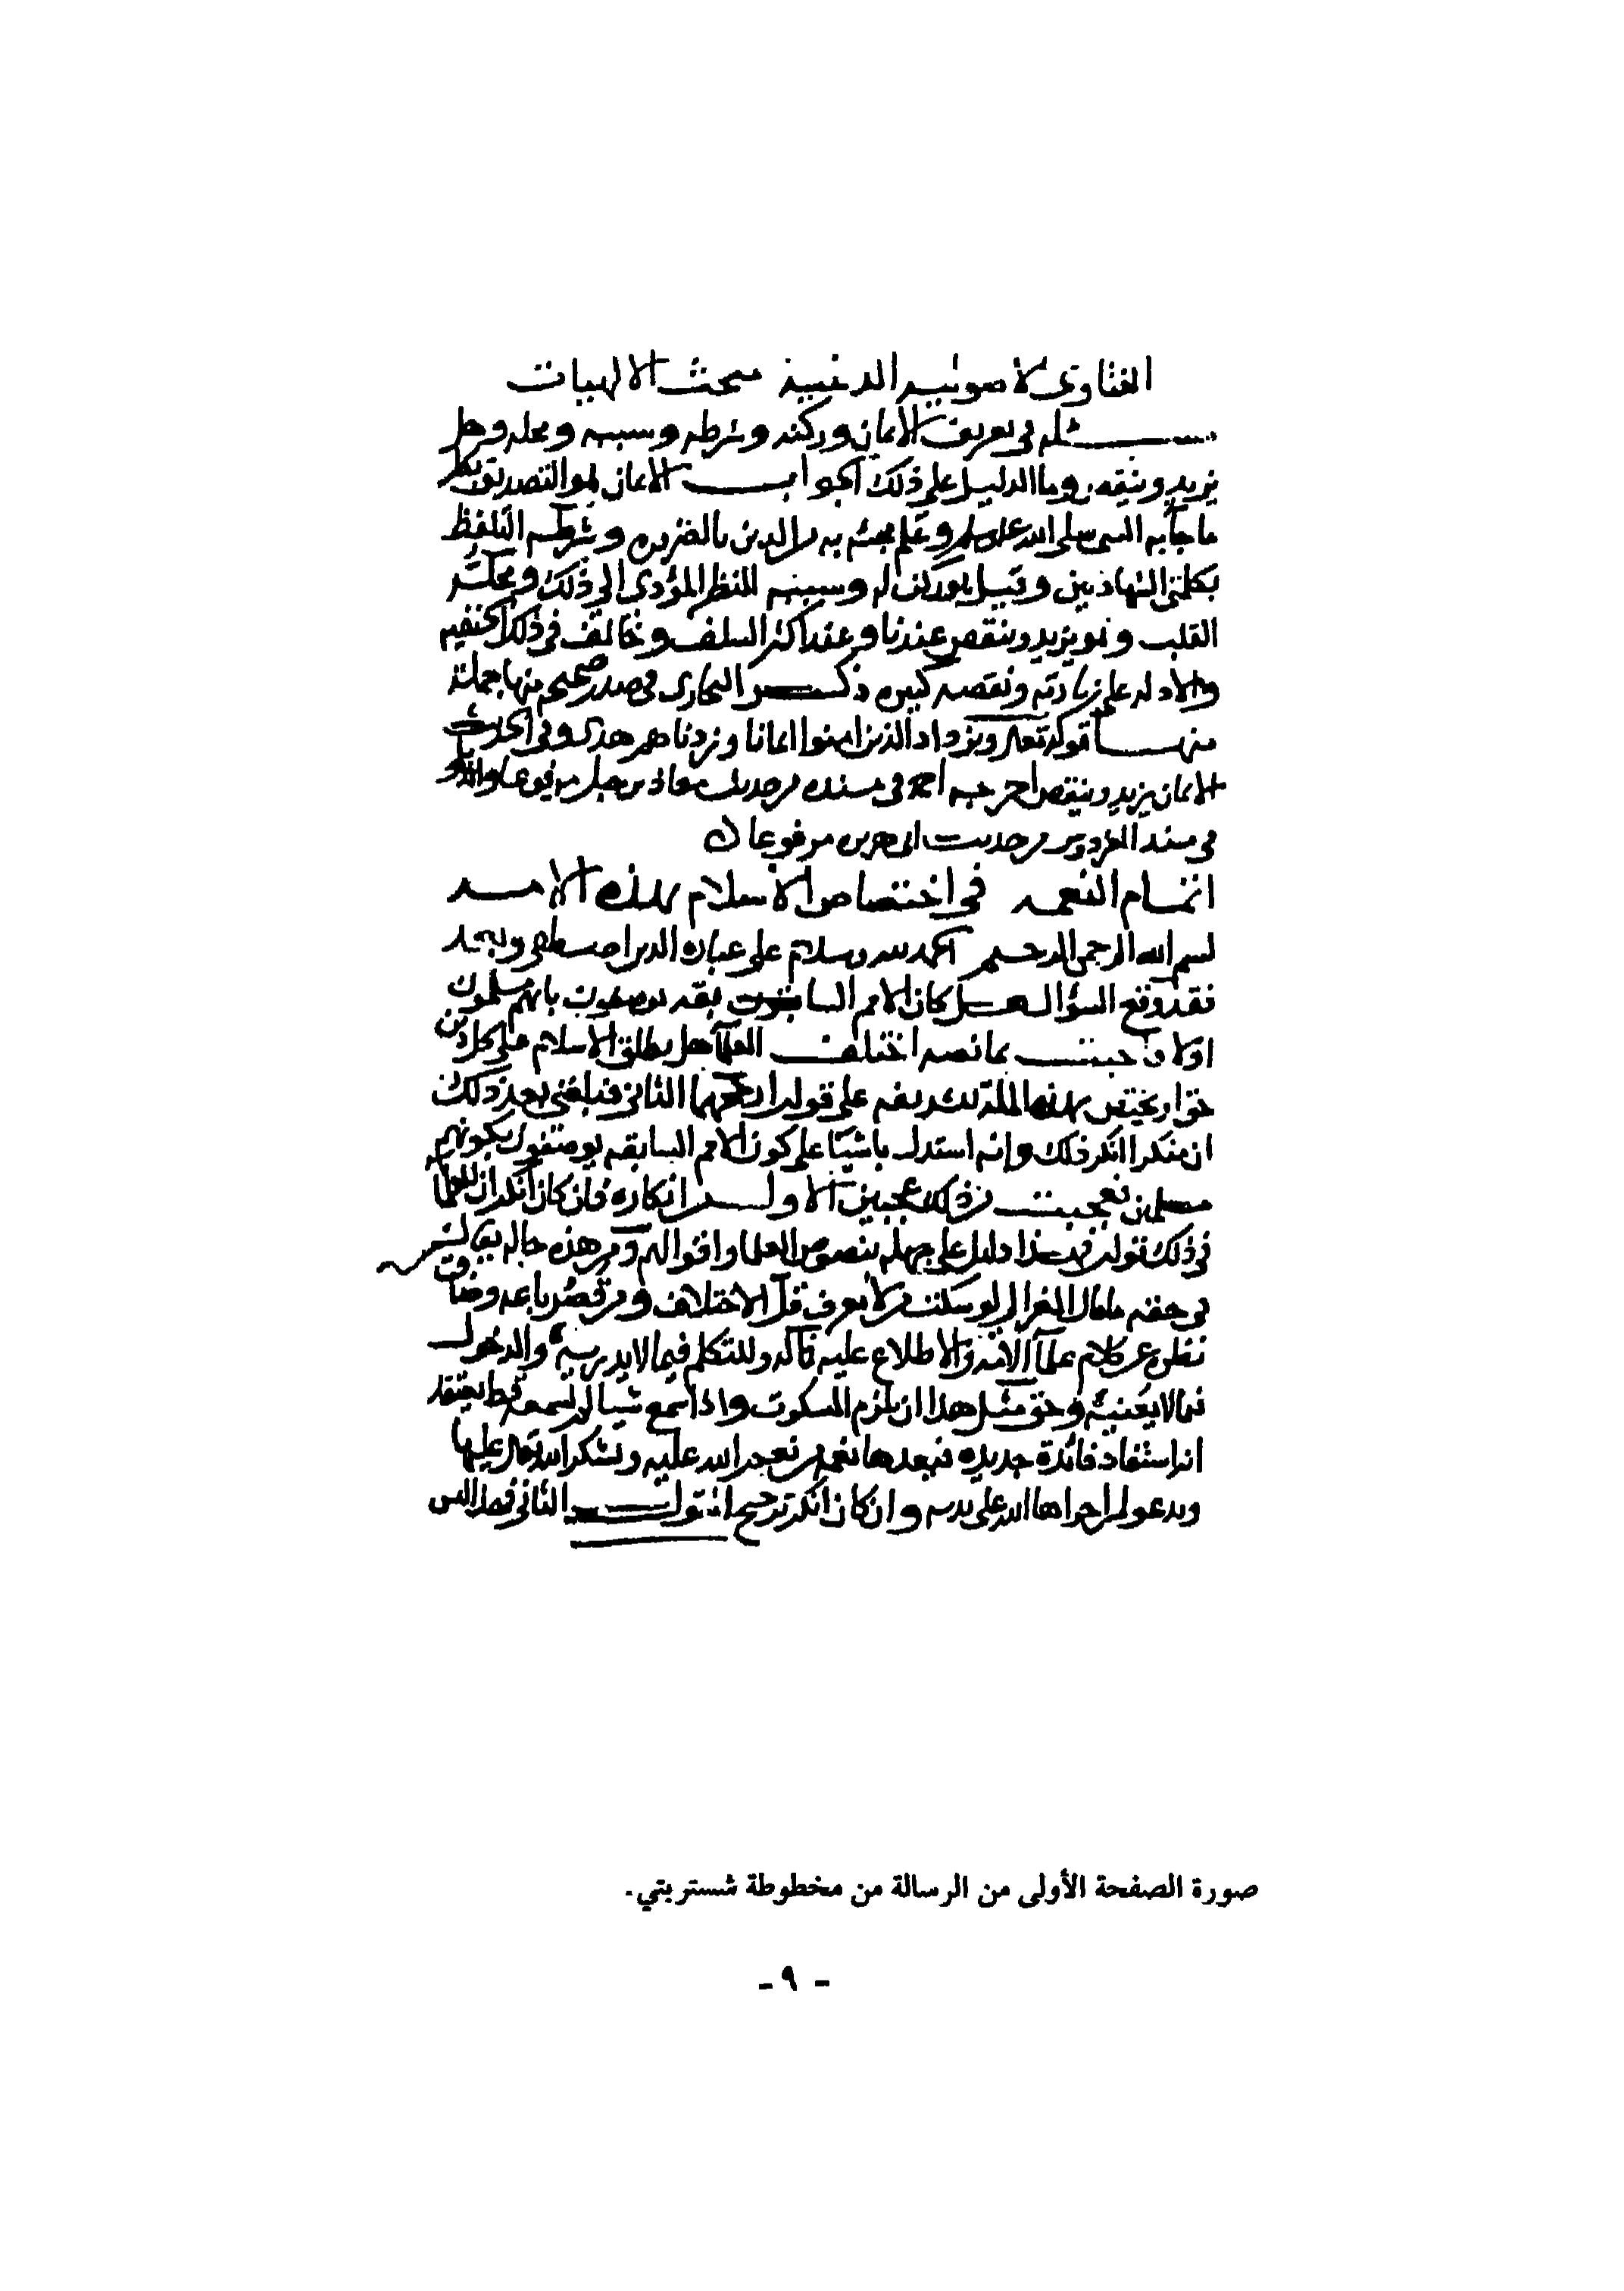 الفتاوى الاصولية الدينية مبحث الالهيات
مسئلة في تعريف الايمان وركنه وشرطه وسببه ومحله وهل
يزيد وينقص وما الدليل على ذلك الجواب الايمان هو التصديق بكل
ما جآ به النبي صلى الله عليه وسلم وعلم مجيئه به من الدين بالضرورة وشرطه التلفظ
بكلمتي الشهادتين وقيل هو ركن له وسببه النظر المؤدي الى ذلك ومحله
القلب وهو يزيد وينقص عندنا وعند اكثر السلف وخالف في ذلك الحنفيه
والادله على زيادته ونقصه كثيره ذكر البخاري في صدر صحيحه منها جملة
منها قوله تعالى ويزداد الذين امنوا ايمانا وزدناهم هدى وفي الحديث
الايمان يزيد وينقص اخرجه احمد في مسنده من حديث معاذ بن جبل مرفوعا والديلمي
في مسند الفردوس من حديث ابي هريره مرفوعا
اتمام النعمة في اختصاص الاسلام بهذه الامة
بسم الله الرحمن الرحيم الحمد لله وسلام على عباده الذين اصطفى وبعد
فقد وقع السؤال هل كان الامم السابقة يوصفون بانهم مسلمون
اولا فاجبت بما نصه اختلف العلمآ هل يطلق الاسلام على كل دين
حق او يختص بهذه الملة الشريفه على قولين ارجحهما الثاني فبلغني بعد ذلك
ان منكرا انكر ذلك وانه استدل باشيآ على كون الامم السابقه يوصفون بكونهم
مسلمين فعجبت من ذلك عجبين الاول انكاره فان كان انكر ان للعلمآ
في ذلك قولين فهذا دليل على جهله بنصوص العلما واقوالهم ومن هذه حاله يقال
في حقه ما قال الغزالي لو سكت من لا يعرف قل الاختلاف ومن قصر باعه وضاق
نظره عن كلام علمآ الامة والاطلاع عليه فما له وللتكلم فيما لا يدريه والدخول
فيما لا يعنيه وحق مثل هذا ان يلزم السكوت واذا سمع شيئا لم يسمعه قط يعتقد
انه استفاد فائدة جديده فيعدها نعمة من نعم الله عليه ويشكر الله تعالى عليها
ويدعو لمن اجراها الله على يديه وان كان انكر ترجيح القول الثاني فهذا ليس
صورة الصفحة الأولى من الرسالة من مخطوطة شستربتي.
- ٩ -